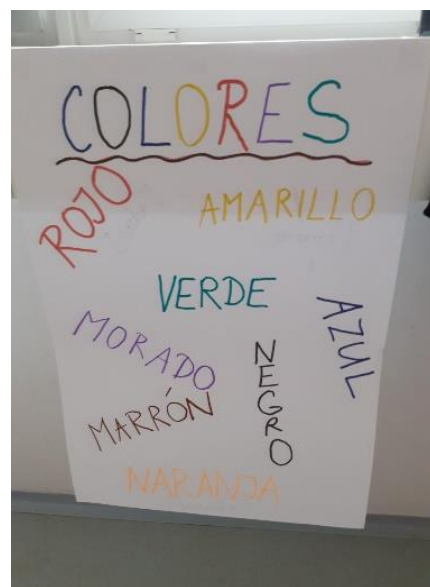 COLORES
ROJO
AMARILLO
VERDE
AZUL
MORADO
NEGRO
MARRÓN
NARANJA